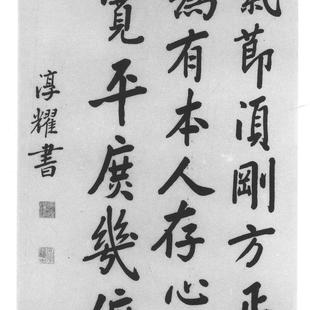 氣節須剛方正
為有本人存心
寬平庶幾
淳耀書